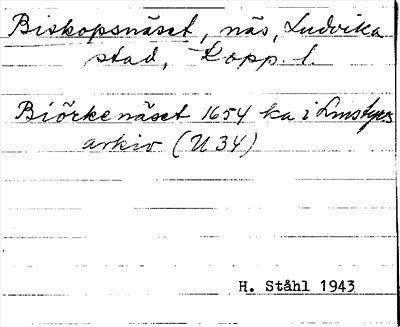 Biskopsnäset, näs, Ludvika
stad, Kopp. l.
Biörkenäset 1654 ka i Lmstyrs
arkiv (U 34)
H. Ståhl 1943